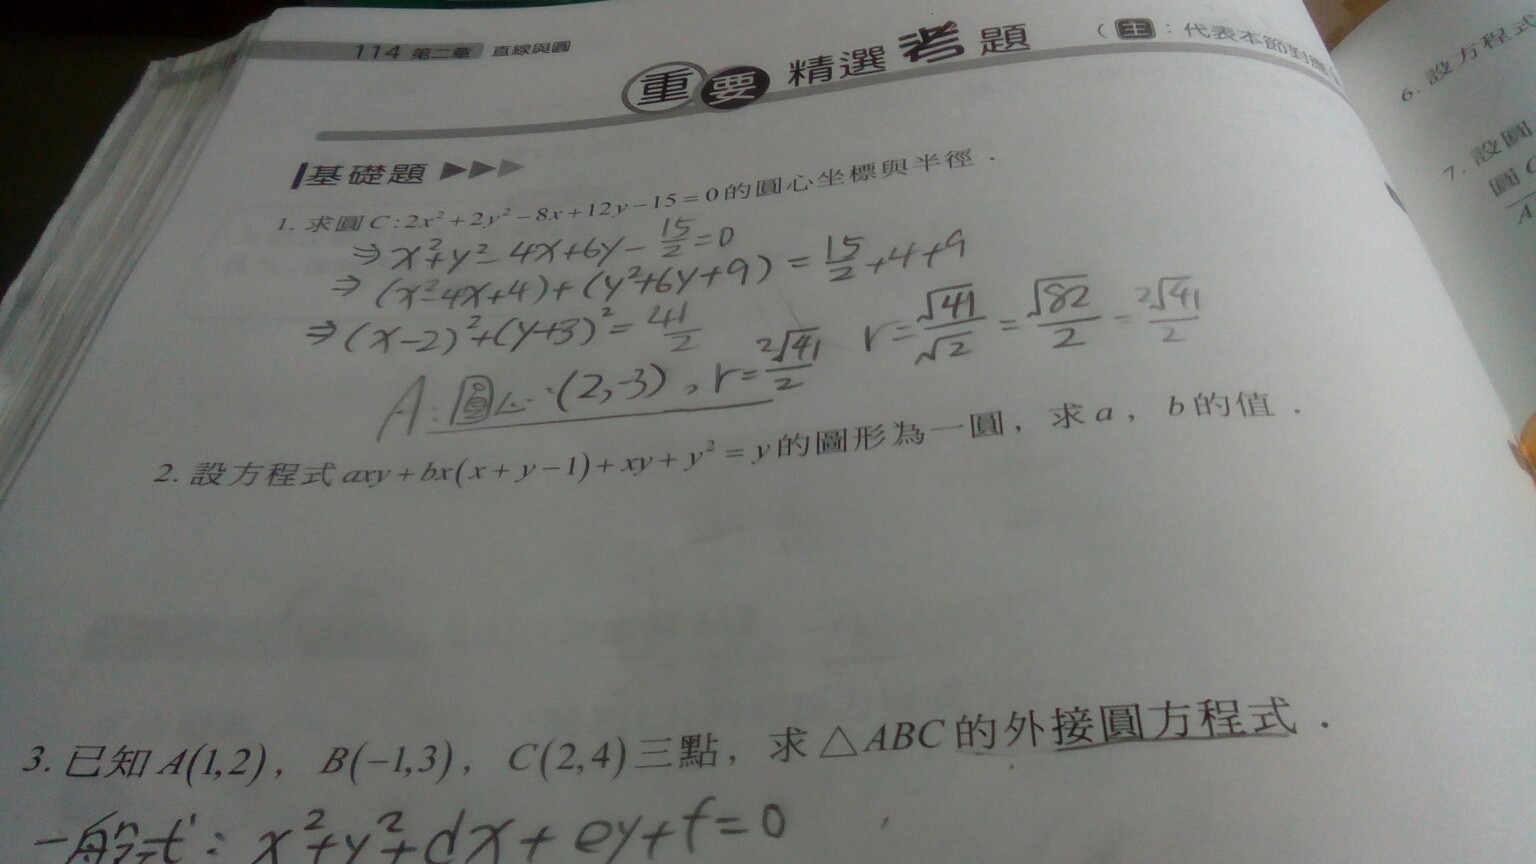 114 第二章 直線與圓
重要精選考題
(主:代表本節對應
基礎題
1. 求圓C:2x²+2y²-8x+12y-15=0的圓心坐標與半徑.
⇒ x²+y²-4x+6y-15/2=0
⇒ (x²-4x+4)+(y²+6y+9)=15/2+4+9
⇒ (x-2)²+(y+3)²=41/2
r=√41/√2=√82/2=2√41/2
A:圓心:(2,-3),r=2√41/2
2. 設方程式axy+bx(x+y-1)+xy+y²=y的圖形為一圓,求a,b的值.
3. 已知A(1,2),B(-1,3),C(2,4)三點,求△ABC的外接圓方程式.
一般式:x²+y²+dx+ey+f=0
6. 設方程式
7. 設圓
圓C
A